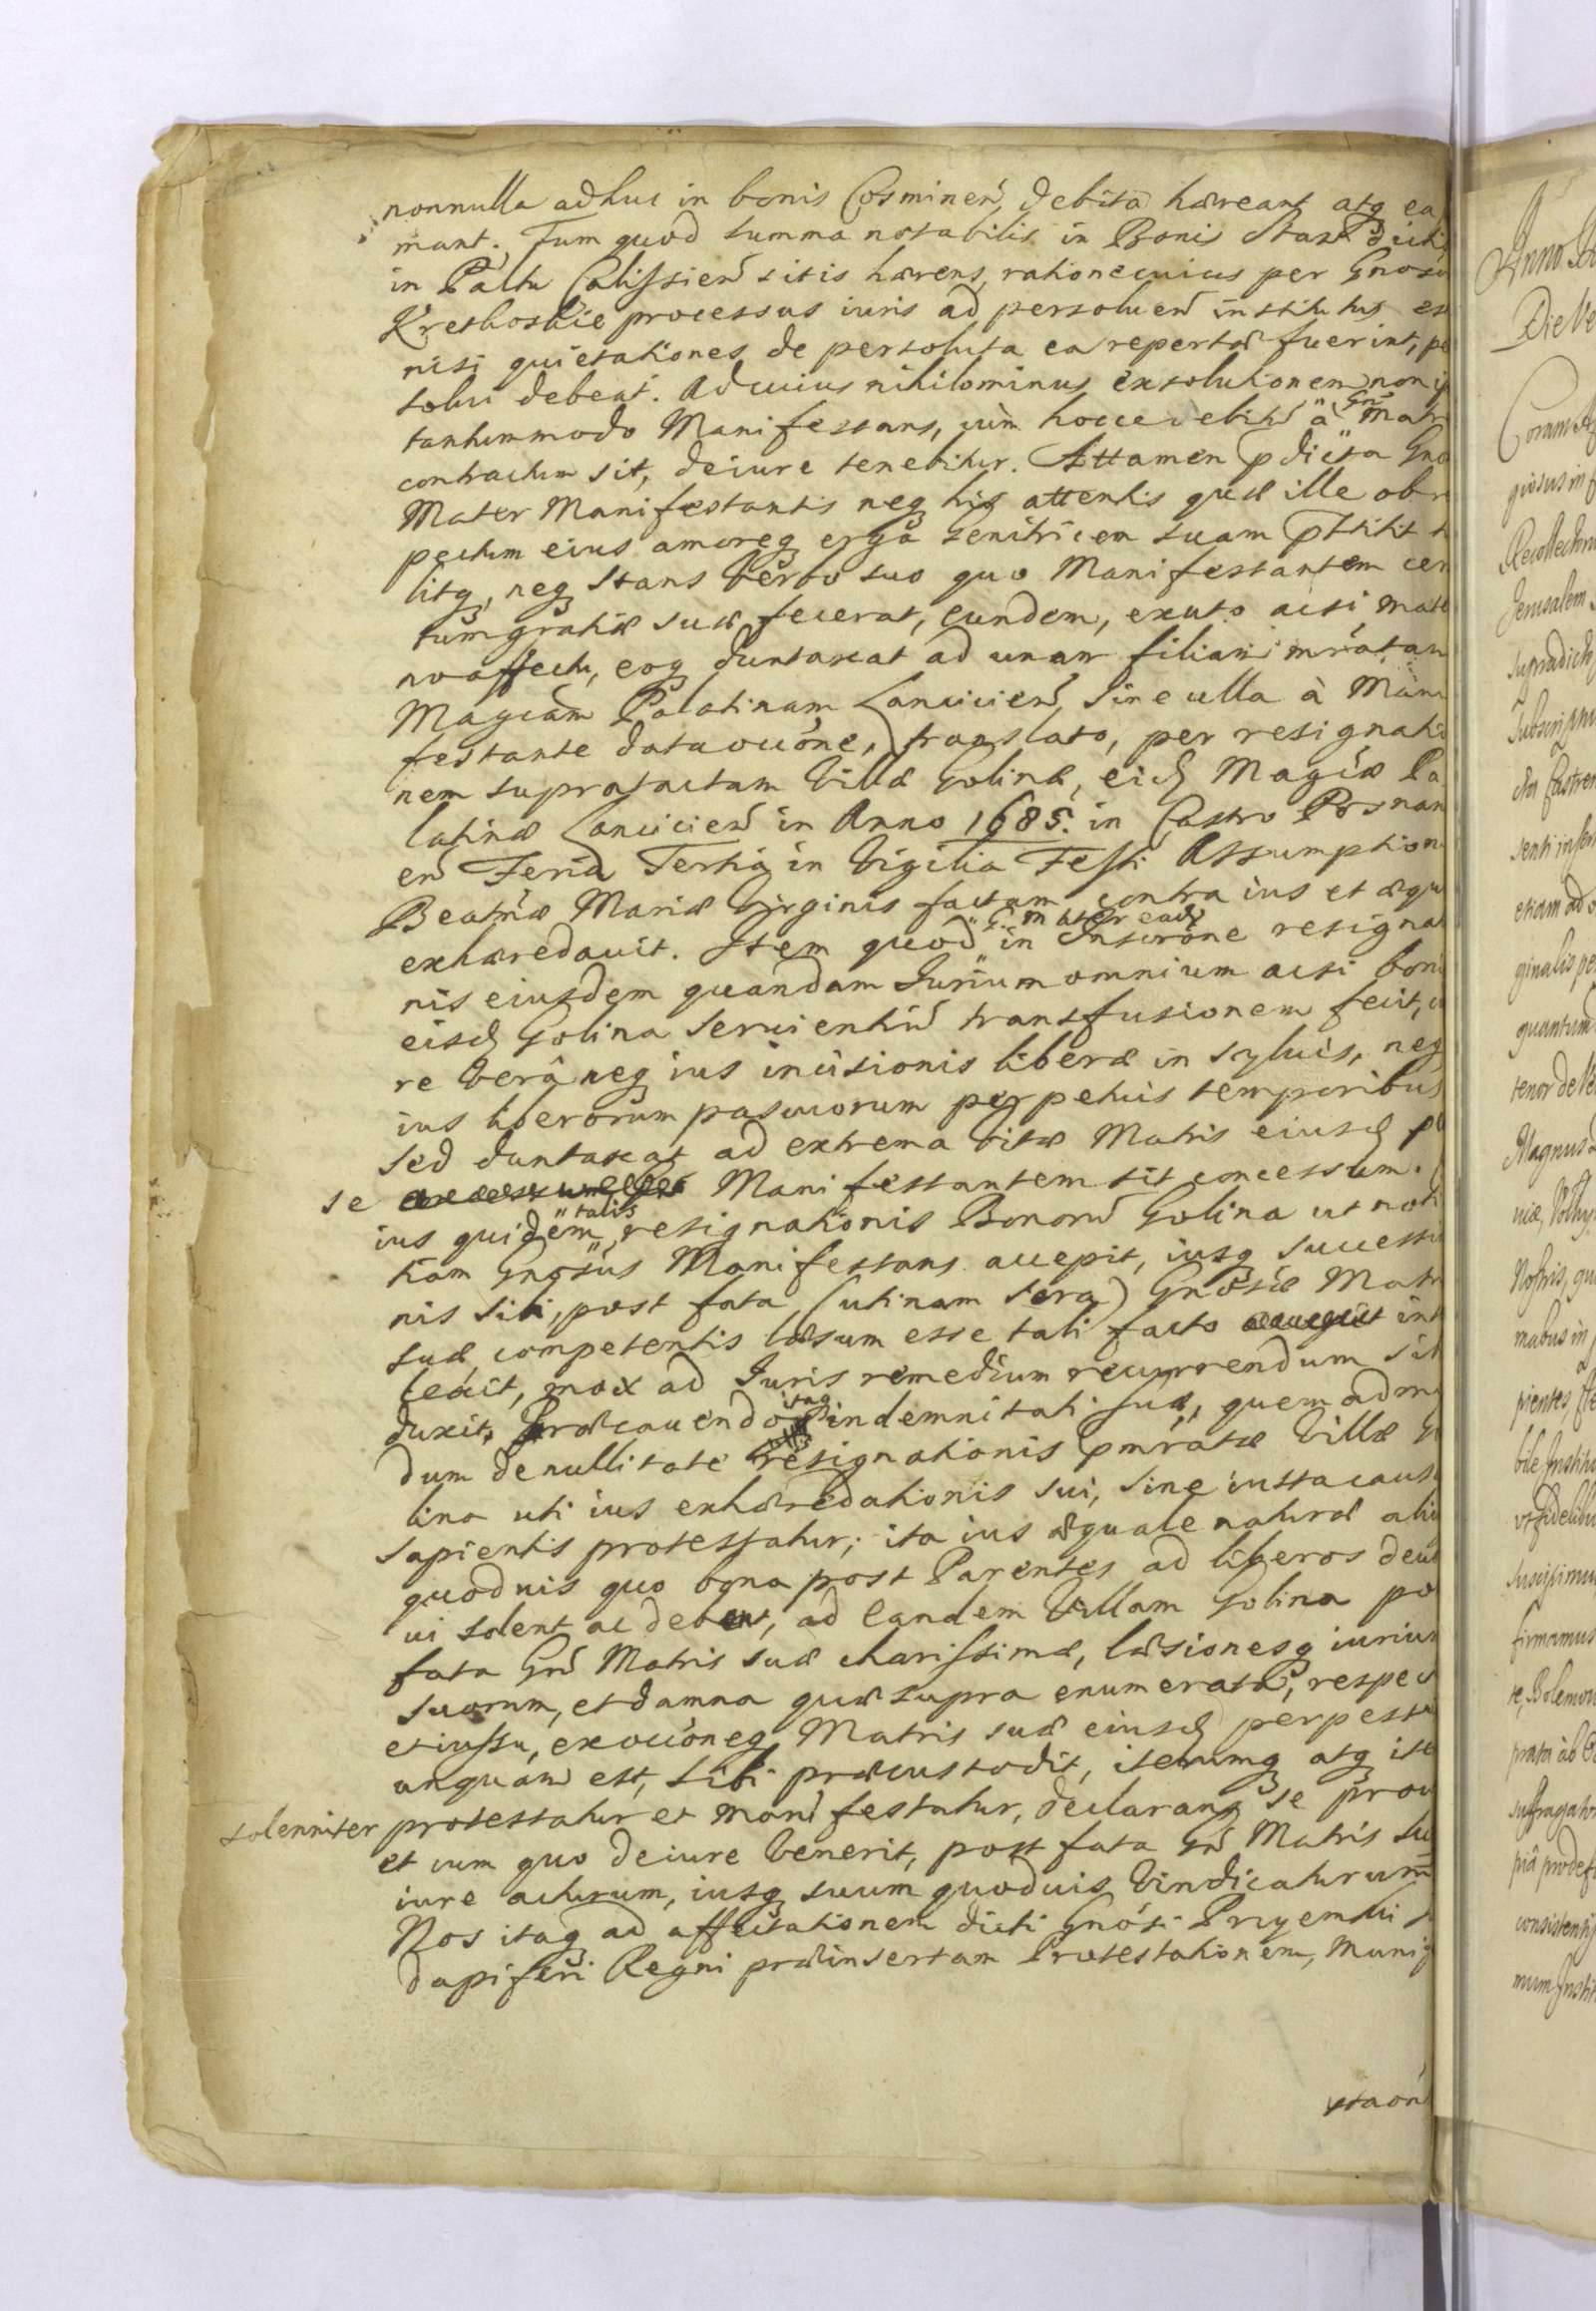 nonnulla adhuc in bonis Cosminen̄, debita hæreant atq ea
mant. Tum quod summa notabilis in Bonis Staw dicti
in Paltu Calissien̄ sitis hærens, ratione cuius per Gnosu
processus iuris ad persoluen̄ institutus es
nisi quietationes de persoluta ea repertæ fuerint, pe
solui debeat. Ad cuius nihilominus exsolutionem non
tantummodo Manifestans, cùm hocce debitū à Gn̄ Matr
contractum sit, de iure tenebitur. Attamen pdicta Gno
Mater Manifestantis neq his attentis quæ ille ob r
pectum eius amoreq erga Genitricem suam pstitit
litq, neq stans Verbo suo quo Manifestantem cer
tum gratiæ suæ fecerat, eundem, exuto acsi mate
no affectu, eoq duntaxat ad unam filiam mratam
Magcam Palatinam Lancicien̄, Sine ulla à Mani
festante data occōne, translato, per resignatio
nem supratactam Villæ Golinæ, eid Magcæ Pa
latinæ Lancicien̄ in Anno 1685. in Castro Posnan
en̄ Feria Tertia in Vigilia Festi Assumption
Beatmæ Mariæ Virginis factam contra ius et æqu
exhæredauit. Item quod G. Mater ead in Inscrōne resigna
nis eiusdem quandam Iurium omnium acsi bon
eisd Golina seruientiū transfusionem fecit, c
re Verâ neq ius incisionis liberæ in syluis, neq
ius liberorum pascuorum perpetuis temporibus
sed duntaxat ad extrema vitæ Matris eiusd p
se Manifestantem sit concessum.
ius quidem talis resignationis Bonorū Golina ut noti
tiam Gnosus Manifestans accepit, iusq successio
nis sibi, post fata (utinam sera) Gnosæ Matr
suæ competentis læsum esse tali facto int
lexit, mox ad Iuris remedium recurrendum sib
duxit, Præcauendo itaq indemnitati suæ, quemadmo
dum de nullitate resignationis pmratæ Villæ Go
lina uti ius exhæredationis sui, sine iusta caus
sapientis protestatur; ita ius æquale naturæ aliu
quoduis quo bona post Parentes ad liberos deu
ui solent ac debent, ad eandem Villam Golina po
fata Gn̄ Matris suæ charissimæ, læsionesq iuriu
suorum, et damna quæ supra enumerata, respec
et iussu, ex occōneq Matris suæ eiusd perpessu
unquam est, sibi præcustodit, iterumq atq ite
solenniter protestatur et manifestatur, declarans se prou
et cum quo de iure Venerit, post fata Gn̄ Matris su
iure acturum, iusq suum quoduis Vindicaturum
Nos itaq ad affectationem dicti Gnosi Przyemski
dapiferi Regni præinsertam Protestationem, Manif
staōn̄
Anno
Die Ve
Coram
giosus in
Recollectoru
Jerusalem
supradict
Subscriptu
cta Castren
senti inser
etiam ad o
ginalis pe
quantum
tenor de Ve
Magnus
niæ, Volhy
Nostris, qu
mabus in
pientes, 
bile Institu
Suscipimu
firmamus
te, Bolemou
prata ab
suffragato
piâ prodef
consistenti
mum Instit